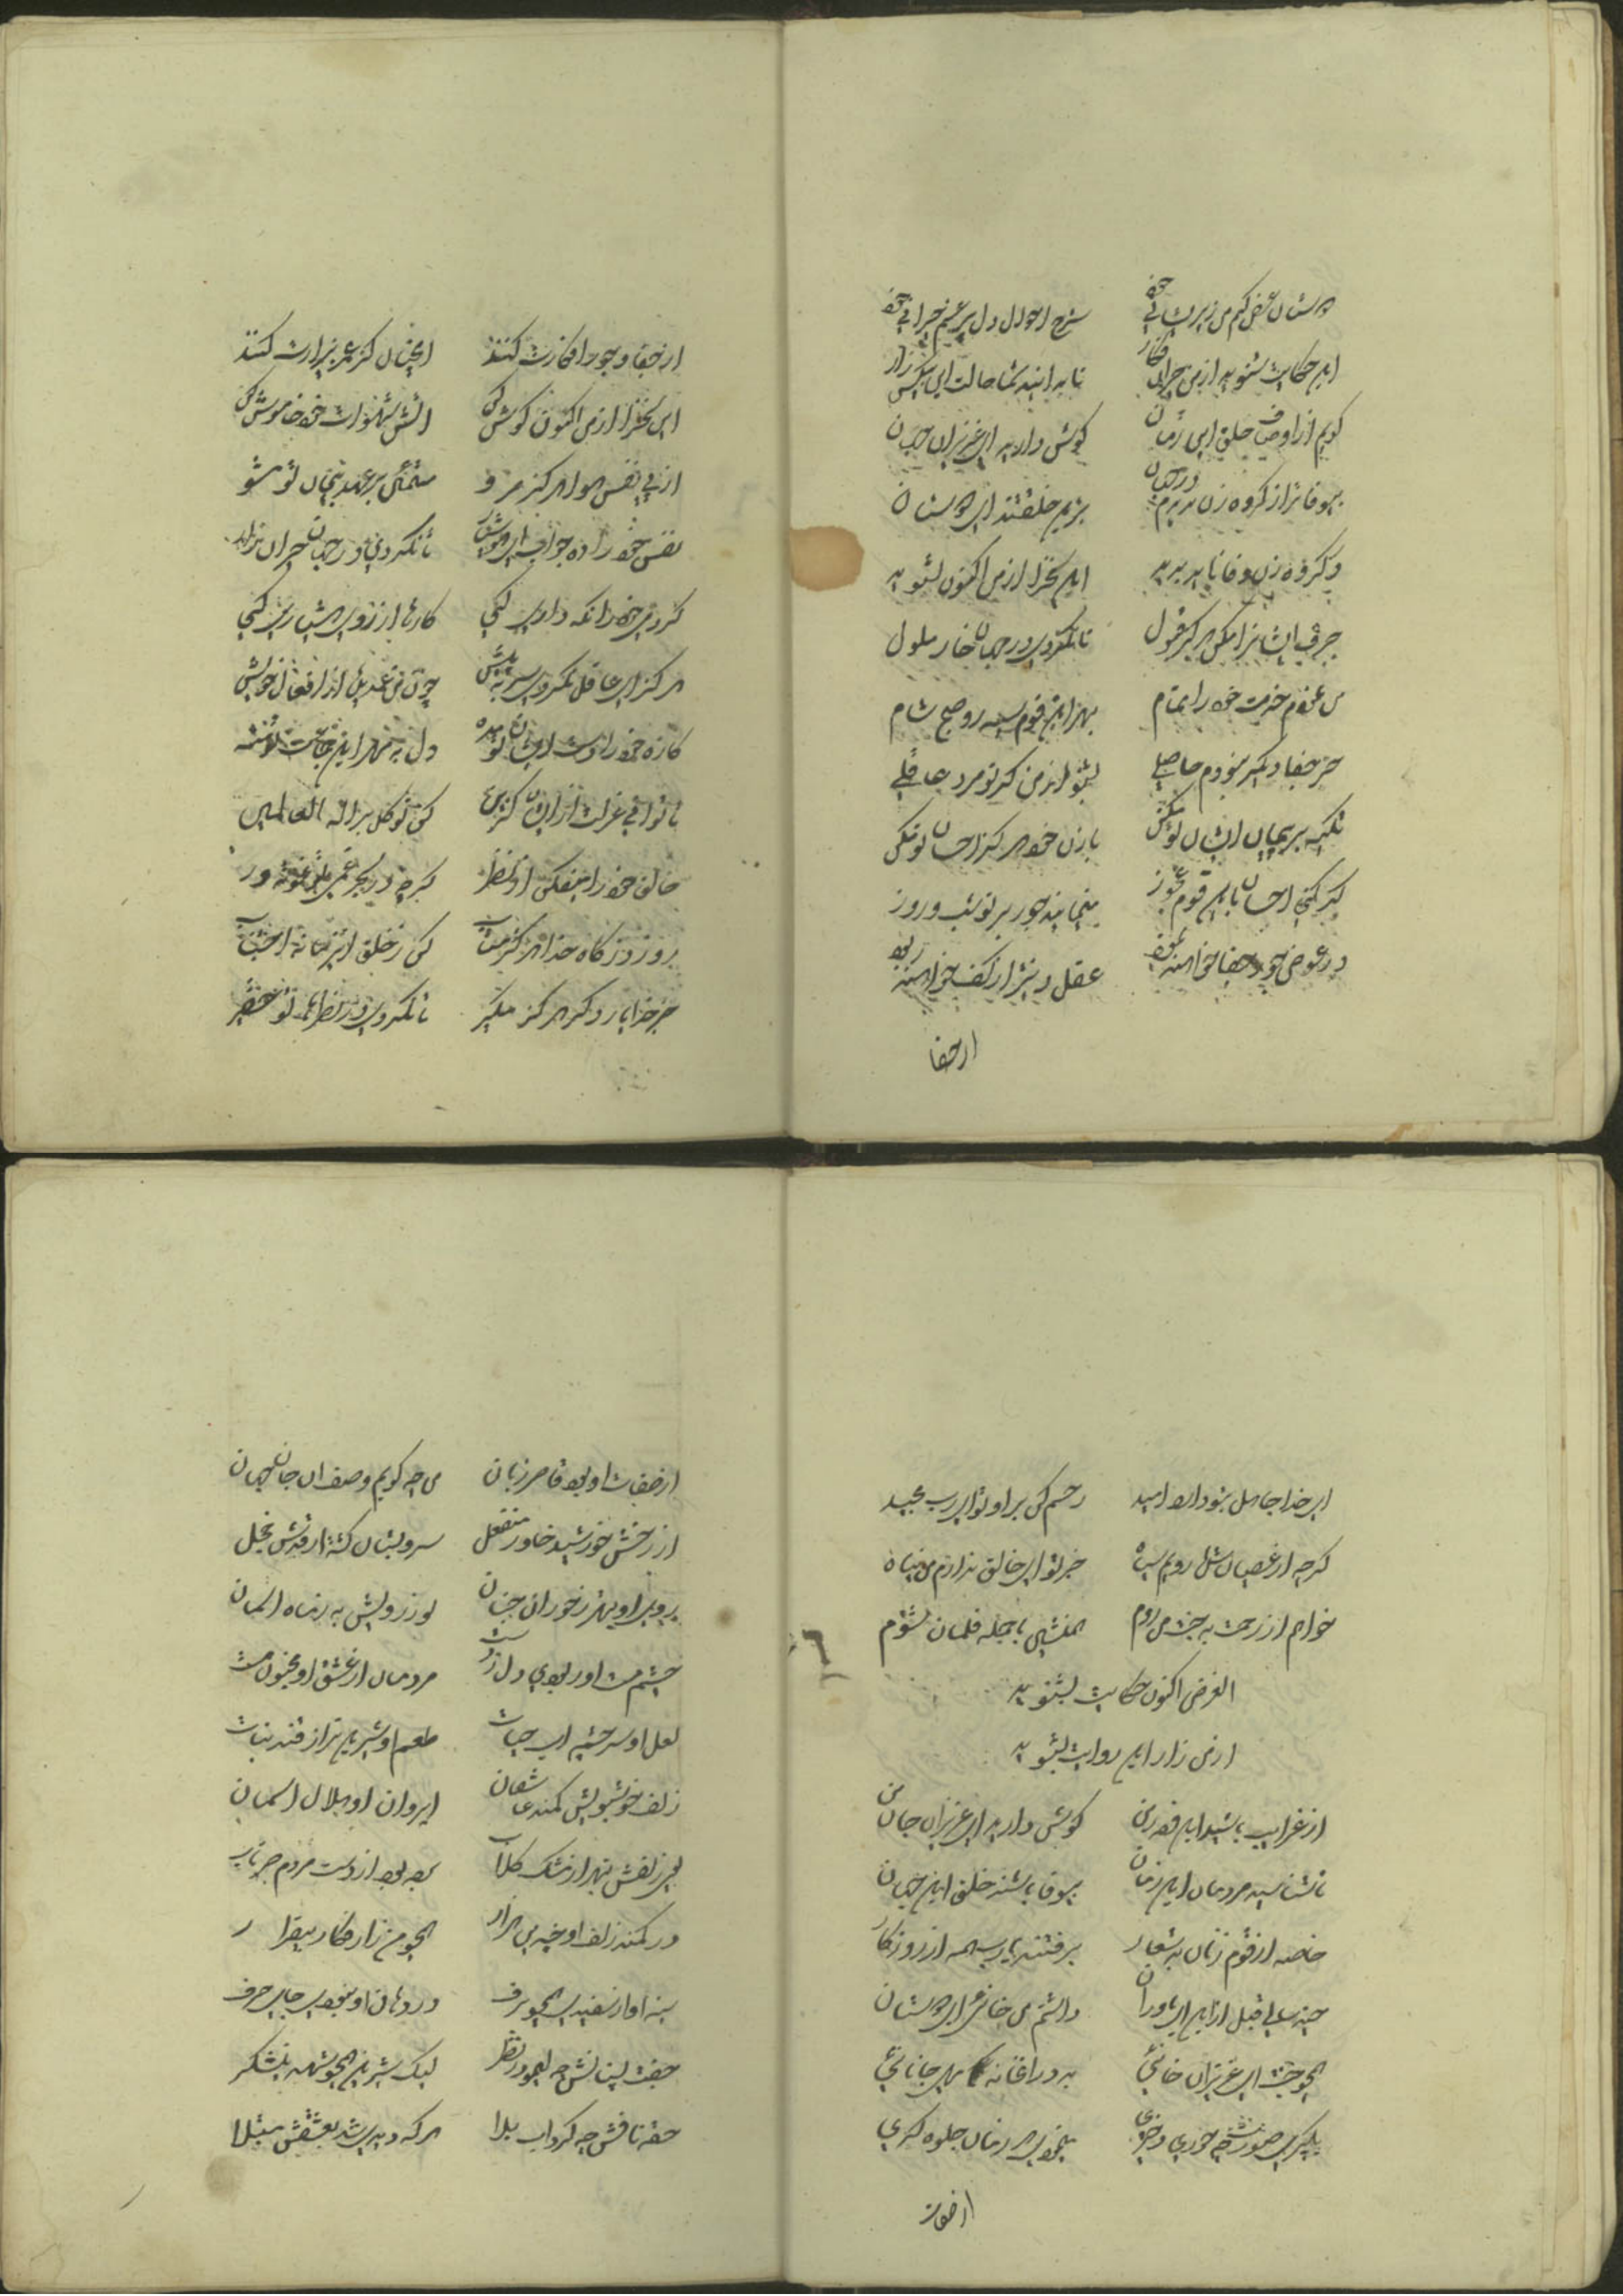 دوستان عرض کنم من از پریشانی خود شرح احوال دل پر غم حیرانی خود
این حکایت بشنوید از من جوانی فکار تا بدانید شما حالت این بیکس زار
گویم از اوصاف خلق این زمان گوش دارید ای عزیزان جهان
بیوفاتر از گروه زن ندیدم در جهان بدترین خلقتند ای دوستان
در گروه زن وفا ناید پدید این سخن را از من اکنون بشنوید
حرف ایشانرا مکن هرگز قبول تا نگردی در جهان خار ملول
من نمودم خدمت خود را تمام بهر این قوم سیه رو صبح شام
جز جفا دیگر نبودم حاصلی بشنو از من گر تو مرد عاقلی
تکیه بر پیمان ایشان تو مکن با زن خود هرگز احسان تو مکن
گر کنی احسان باین قوم عجوز مینمایند جور بر تو شب و روز
در عوض جور و جفا خواهند نمود عقل و دینت از کف خواهند ربود
از جفا
از جفا و جور افکارت کنند آنچنان کز عمر بیزارت کنند
این سخن را از من اکنون گوش کن آتش شهوات خود خاموش کن
از پی نفس و هوا هرگز مرو متمکن بر عهد پیمان تو مشو
نفس خود را ده جواب ای هوشیار تا نگردی در جهان حیران و زار
گر دمی خود را نگه داری کنی کارها از روی هشیاری کنی
هرگز ای عاقل نگردی سر به پیش چون من غمدیده از افعال خویش
کاره خود را دست ایشان تو مده دل به مهر این جماعت تو منه
تا توانی عزلت از ایشان گزین کن توکل بر اله العالمین
خالق خود را میفکن از نظر گرچه در بحر غمی باشی غوطه ور
رو ز درگاه خدا هرگز متاب کن ز خلق این زمانه اجتناب
جز خدا یار دگر هرگز مگیر تا نگردی در نظرها تو حقیر
ای خدا جاهل بتو دارد امید رحم کن بر او تو ای رب مجید
گرچه از عصیان شد رویم سیاه جز تو ای خالق ندارم من پناه
خواهم از رحمت به جنت من روم همنشین با جمله غلمان شوم
الغرض اکنون حکایت بشنوید
از من زار این روایت بشنوید
از غرایب باشد این قصه من گوش دارید ای عزیزان جان من
تا شناسید مردمان این زمان بیوفا باشند خلق این جهان
خاصه از قوم زنان بد شعار برفتند یارب همه از روزگار
چند سالی قبل از این ای یاوران داشتم من خانه ای دوستان
همچو جنت ای عزیزان خانه بد در آن خانه یکی جانانه
پیکری صورت چه حوری و پری بخوبی هر زمان جلوه گری
از صفات
از صفات او بود قاصر زبان من چه گویم وصف آن جان جهان
از رخش خورشید خاور منفعل سرو بستان گشته از قدش خجل
روی او بهتر ز حوران جنان نور رویش به ز ماه آسمان
چشم مست او ربودی دل ز دست مردمان از عشق او مجنون مست
لعل او سرچشمه آب حیات طعم او شیرین تر از قند نبات
زلف خوشبویش کمند عاشقان ابروان او هلال آسمان
بوی زلفش بهتر از مشک گلاب بد بود از دست مردم صبر تاب
در کمند زلف او چندین هزار همچو من زار فکار بیقرار
سینه او از سفیدی همچو برف در دهان او نبودی جای حرف
جفت پستانش چه لیمو در نظر لیک شیرین همچو شهد نیشکر
حقه نافش چه گرداب بلا هر که دیدی شد بعشقش مبتلا